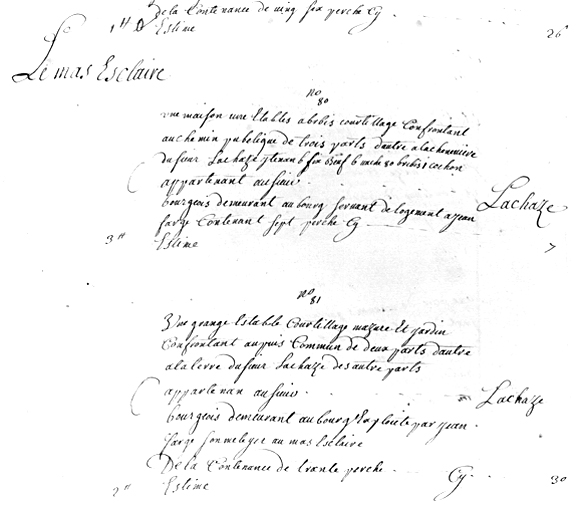 De la Contenance de ving six perche Cy
1# Estime 26
Le mas Esclaire
no
80
une maison cure Etables abrbis courtillage Confrontant
au chemin publique de trois parts dautre a la cheneviere
du sieur Lachaze
appartenant au sieur Lachaze
bourgeois demeurant au bourg servant de logement a jean
farge Contenant sept perche Cy 7
3# Estime
no
81
Une grange Estable Courtillage mazure Et jardin
Confrontant au puis Commun de deux parts dautre
a la terre du sieur Lachaze des autre parts
appartenan au sieur Lachaze
bourgeois demeurant au bourg Exploité par jean
farge son meteyer au mas Esclaire
De la Contenance de trante perche Cy 30
2# Estime